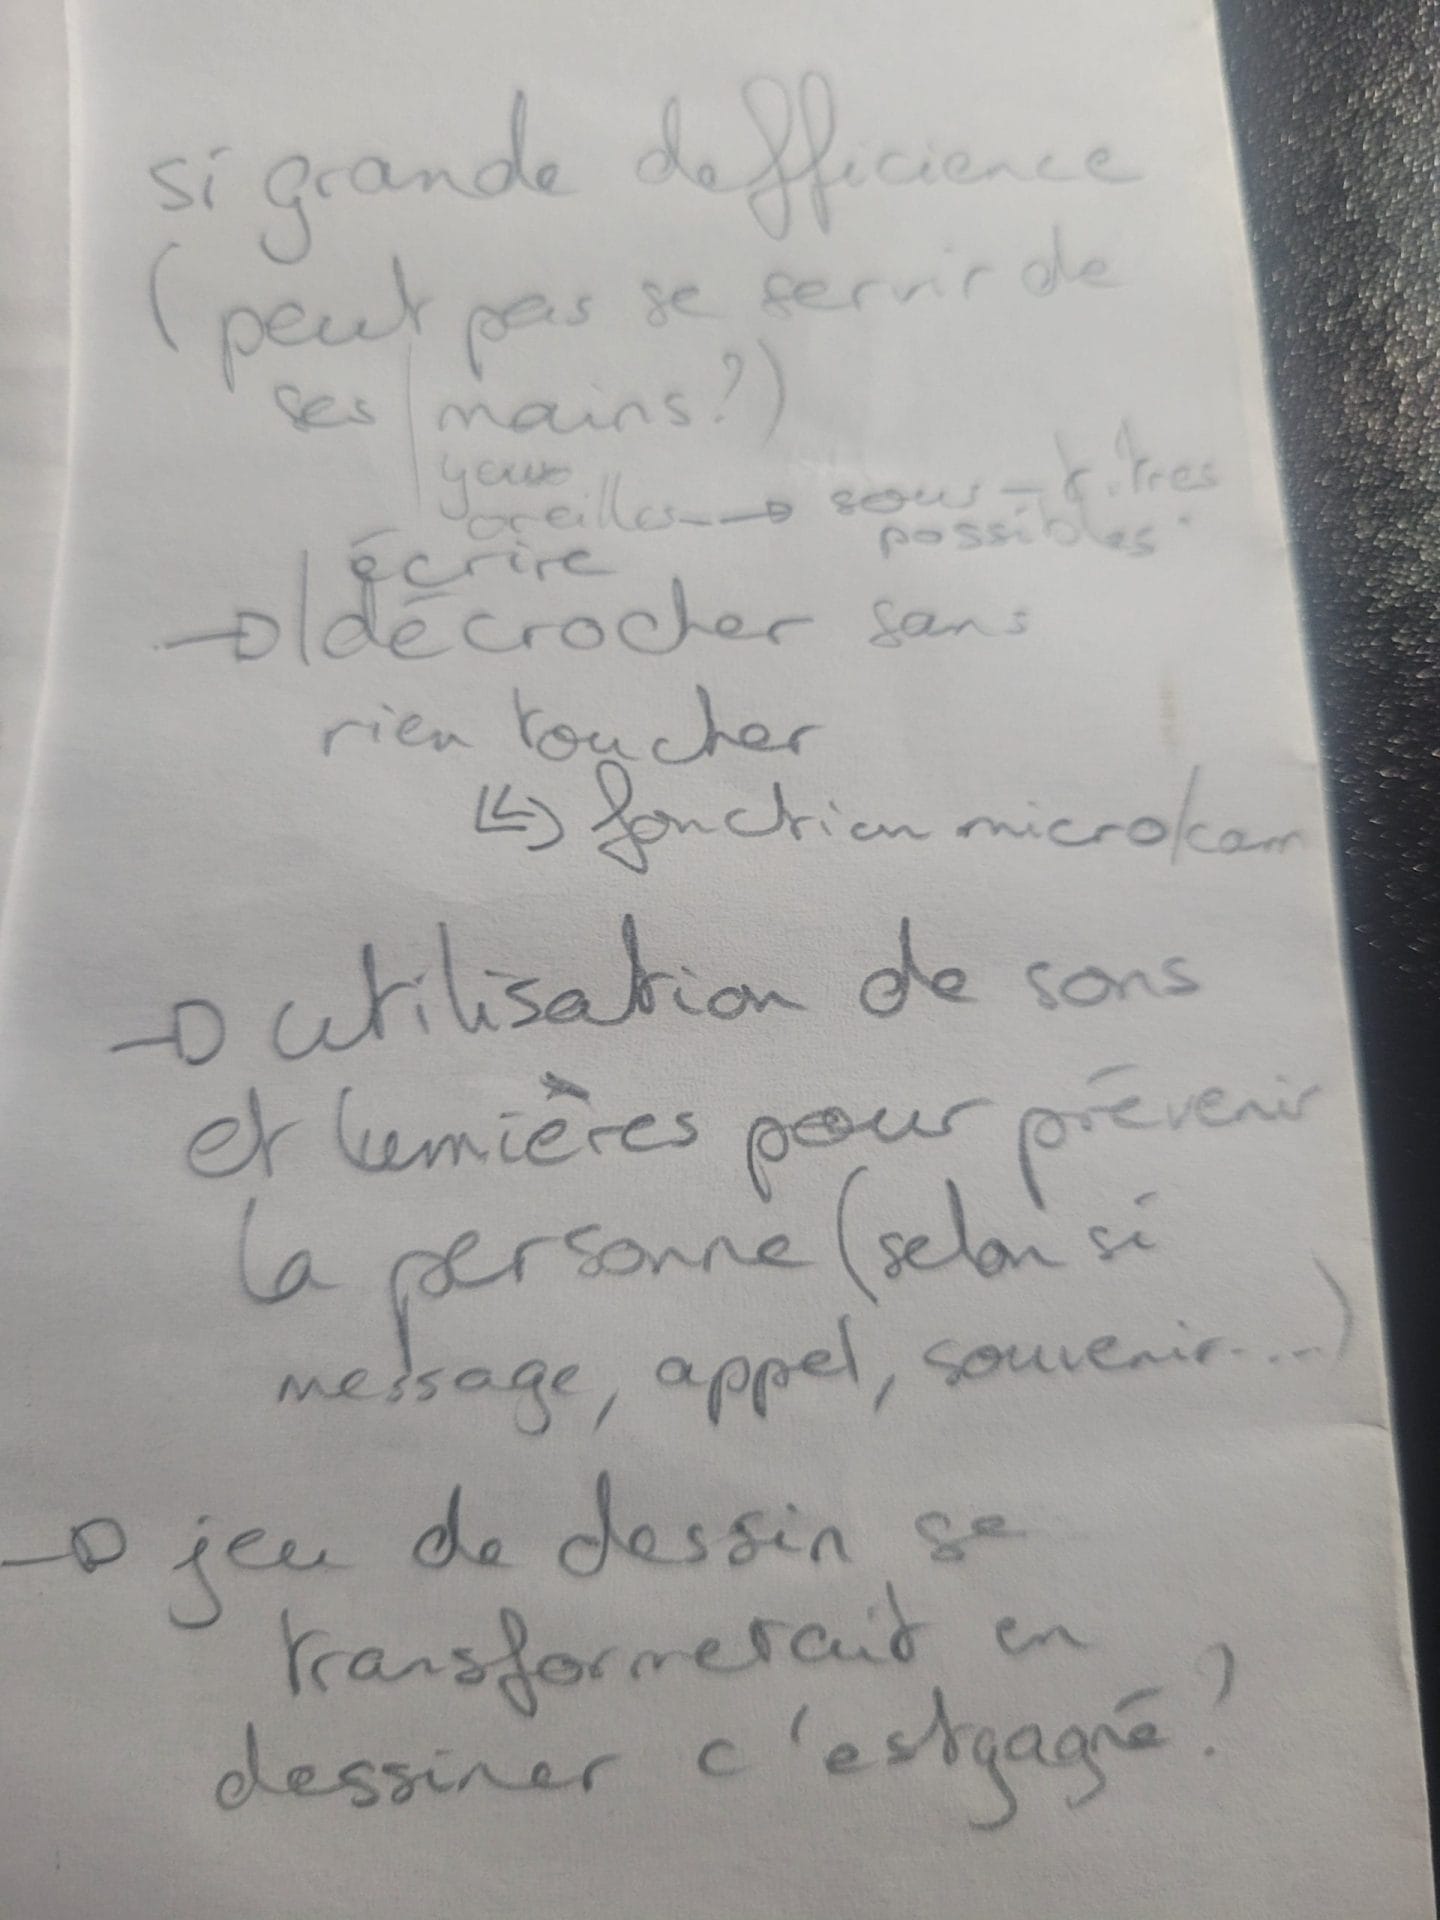 si grande defficience
(peut pas se servir de
ses mains?)
yeux
oreilles --> sous-titres
possibles
écrire
→ décrocher sans
rien toucher
↳ fonction micro/cam
→ utilisation de sons
et lumières pour prévenir
la personne (selon si
message, appel, souvenir...)
→ jeu de dessin se
transformerait en
dessiner c'est gagné?